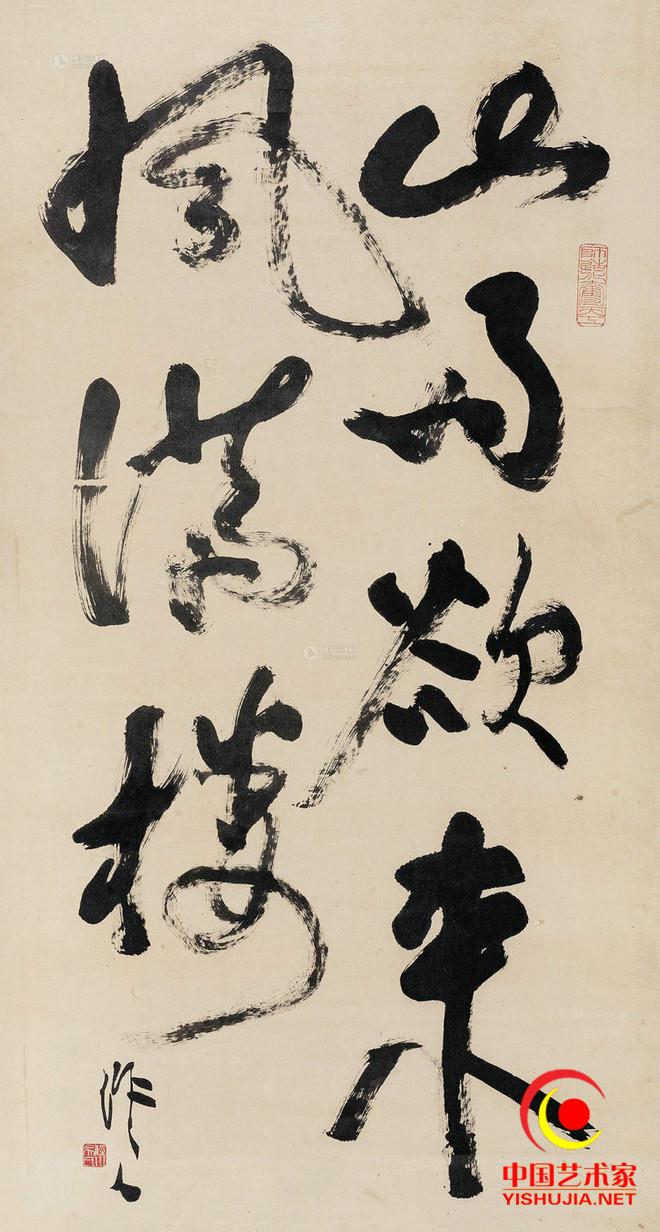 山雨欲来
風滿樓
作人
中国艺术家
YISHUJIA.NET